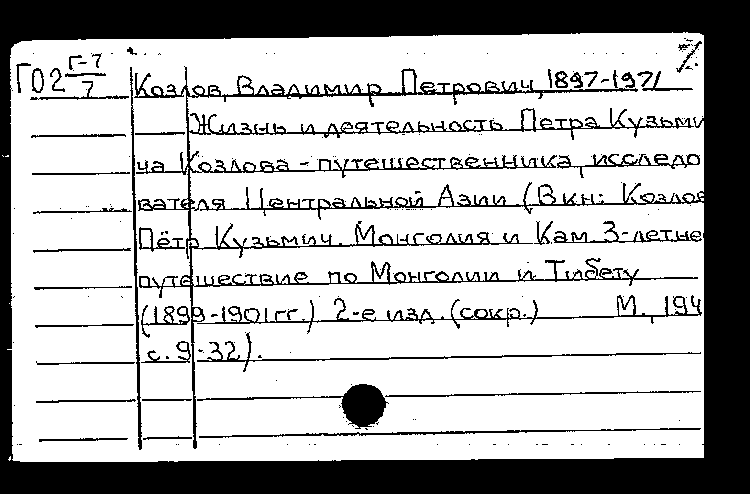 Г02 Г-7/7
Козлов, Владимир Петрович, 1897-1971
Жизнь и деятельность Петра Кузьми
ча Козлова - путешественника, исследо
вателя Центральной Азии (В кн: Козлов
Пётр Кузьмич. Монголия и Кам. 3-летне
путешествие по Монголии и Тибету
(1899-1901гг.) 2-е изд. (сокр.) М., 194
с. 9-32).